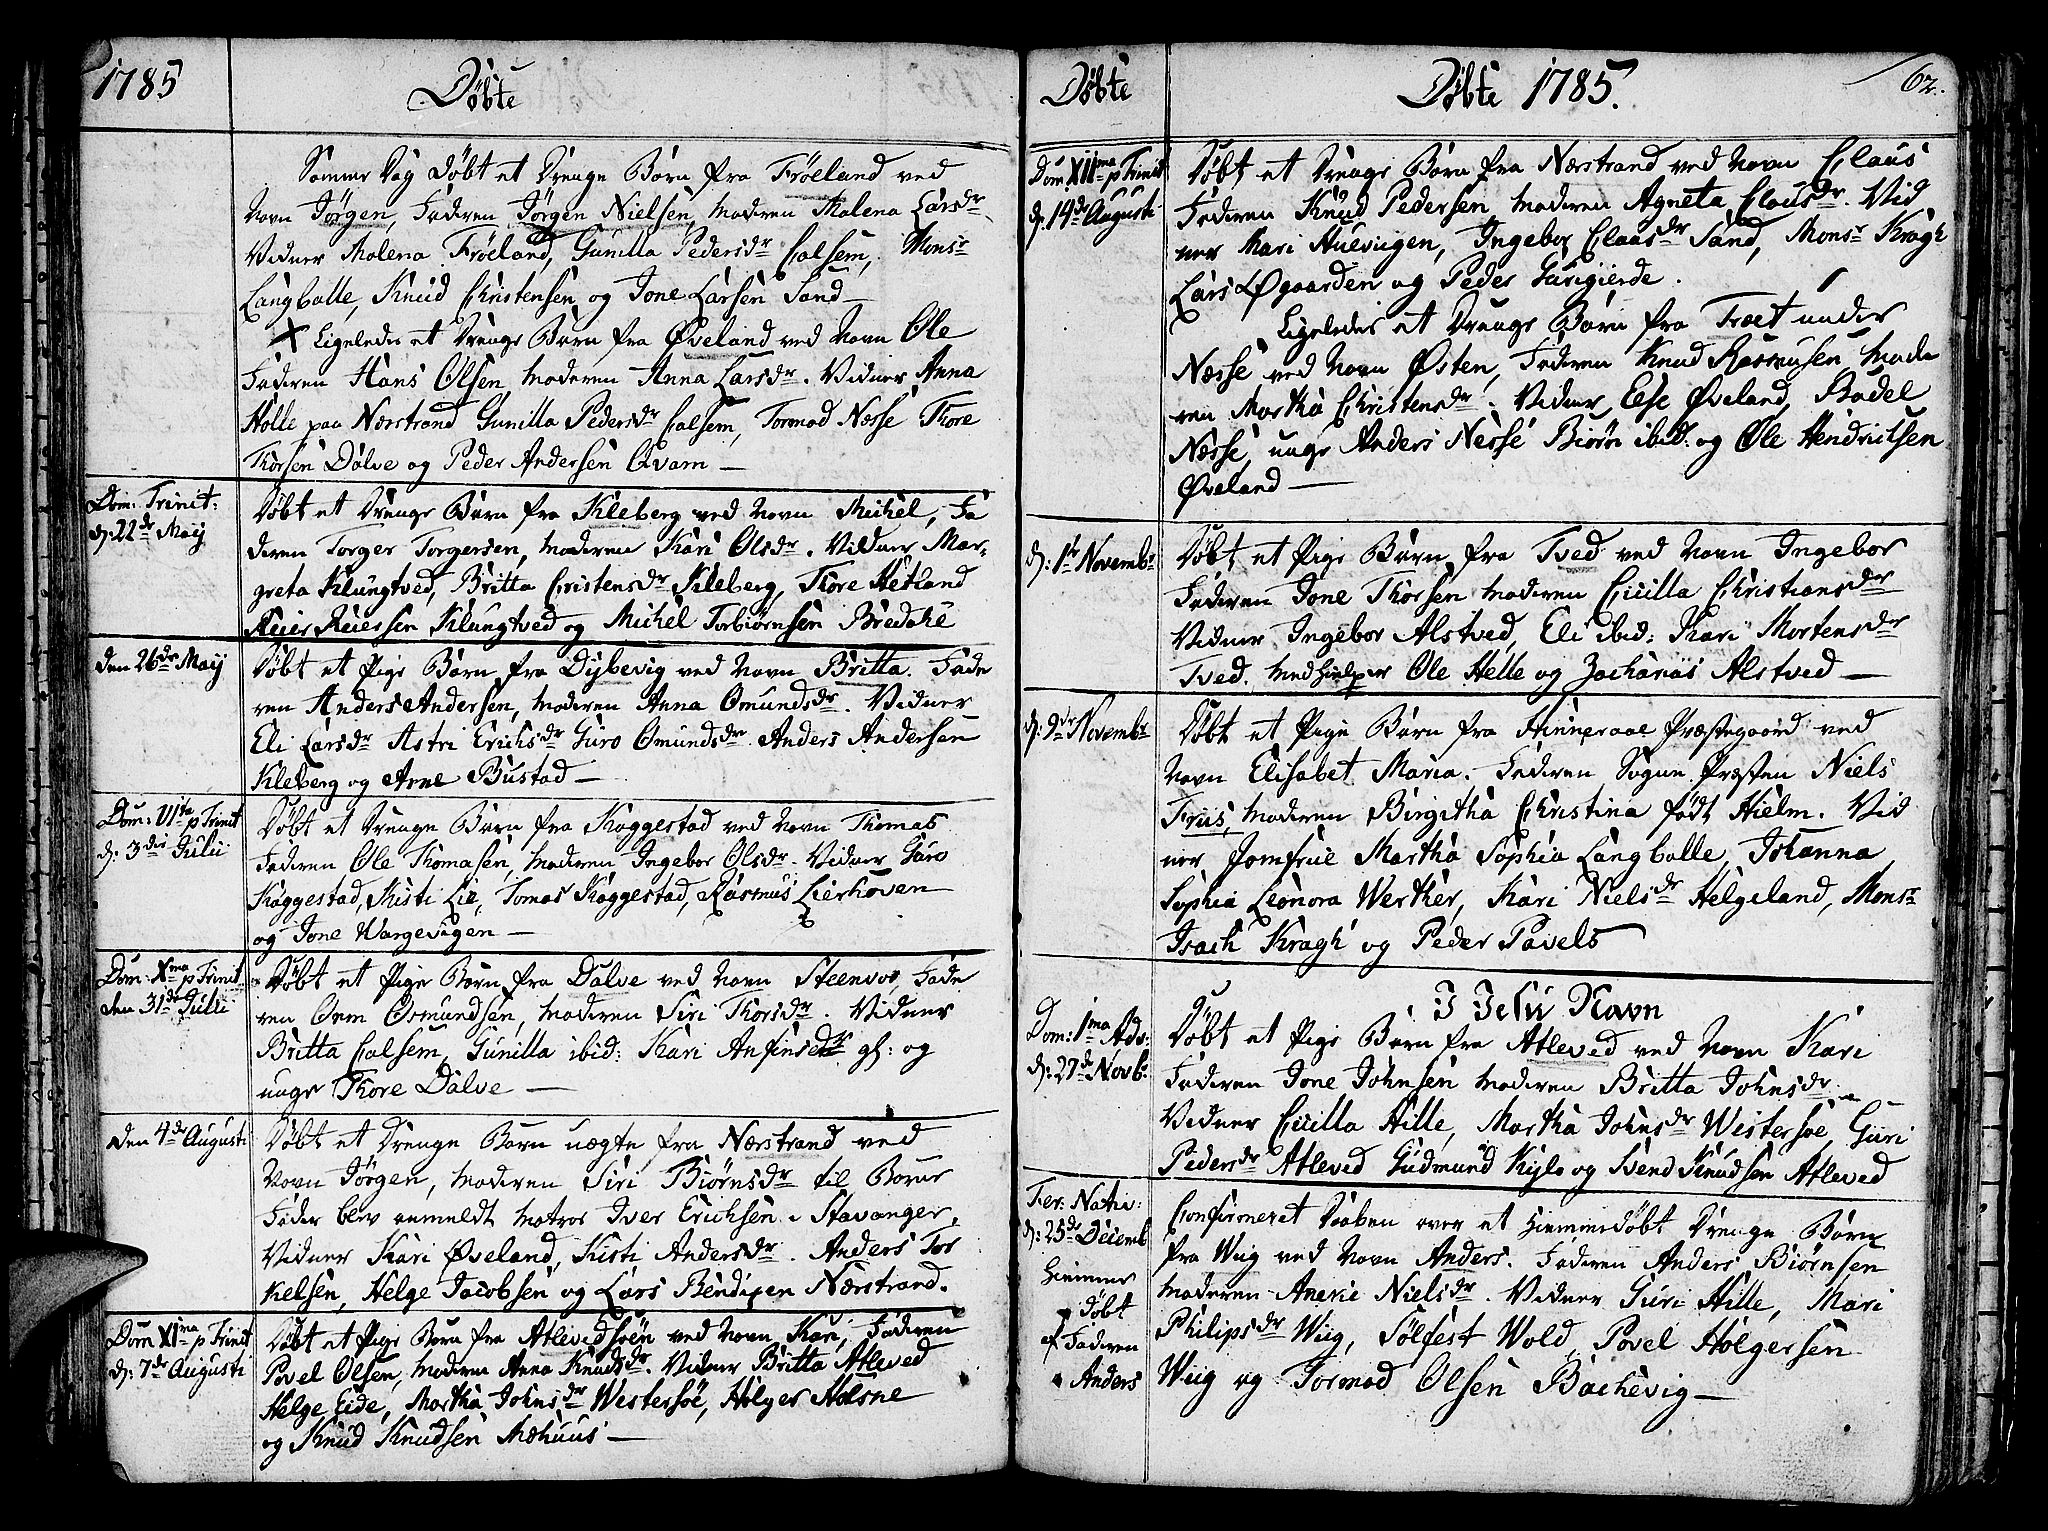 1785
Döbte
Samme Dag döbt et Drenge Barn fra Fröeland ved
Navn Jörgen, Faderen Jörgen Nielsen, Moderen Malena Larsdr
Vidner Malena Fröeland, Gunilla Pedersdr Calsem, Monsr
Langballe, Knud Christensen og Jone Larsen Sand —
Ligeledes et Drenge Barn fra Øveland ved Navn Ole
Faderen Hans Olsen, Moderen Anna Larsdr. Vidner Anna
Hølle paa Nærstrand Gunilla Pedersdr Calsem, Tormod Næsse Thore
Thorsen Dalve og Peder Andersen Qvam —
Dom: Trinit:
d: 22de Maij
Döbt et Drenge Barn fra Kleberg ved Navn Michel, Fa
deren Torger Torgersen, Moderen Kari Olsdr. Vidner Mar-
greta Klungtved, Britta Christensdr Kleberg, Thore Hetland
Reier Reiersen Klungtved og Michel Torbiörnsen Bredahl
den 26de Maij
Döbt et Pige Barn fra Dybevig ved Navn Britta. Fade
ren Anders Andersen, Moderen Anna Omundsdr. Vidner
Eli Larsdr Astri Erichsdr Guro Omundsdr Anders Andersen
Kleberg og Arne Bustad —
Dom: VIta p Trinit
d: 3die Julii
Döbt et Drenge Barn fra Skaggestad ved Navn Thomas
Faderen Ole Thomasen, Moderen Ingebor Olsdr. Vidner Guro
Skaggestad, Kisti Lie, Tomas Skaggestad, Rasmus Lierhoven
og Jone Wargevigen —
Dom: Xma p Trinit
den 31de Julii
Döbt et Pige Barn fra Dalve ved Navn Steenvor, Fade
ren Orm Osmundsen, Moderen Siri Thorsdr. Vidner
Britta Calsem, Gunilla ibid: Kari Anfinsdr gl: og
unge Thore Dalve —
den 4de Augusti
Döbt et Drenge Barn uægte fra Nærstrand ved
Navn Jörgen, Moderen Siri Biörnsdr til Barne
Fader blev anmeldt Matros Iver Erichsen i Stavanger.
Vidner Kari Øveland, Kisti Andersdr. Anders Tor
kelsen, Helge Jacobsen og Lars Bendixen Nærstrand.
Dom XIma p Trinit
d: 7de Augusti
Döbt et Pige Barn fra Atlevedsøen ved Navn Kari, Faderen
Povel Olsen, Moderen Anna Knudsdr. Vidner Britta Atleved
Helge Eide, Martha Johnsdr Westersøe, Holger Halsne
og Knud Knudsen Mæhuus —
Döbte
Döbte 1785.
62.
Dom XIIma p Trinit
d. 14de Augusti
Döbt et Drenge Barn fra Nærstrand ved Navn Claus
Faderen Knud Pedersen, Moderen Agneta Clausdr. Vid
ner Mari Huevigen, Ingebor Claasdr Sand, Monsr Kragh
Lars Øgaarden og Peder Garigierde.
Ligeledes et Drenge Barn fra Træet under
Næsse ved Navn Østen, Faderen Knud Rasmusen Mode
ren Martha Christensdr. Vidner Else Øveland, Bodel
Næsse, unge Anders Nesse Biørn ibid: og Ole Hendricksen
Øveland —
d: 1te Novembr
Döbt et Pige Barn fra Tved ved Navn Ingebor
Faderen Jone Thorsen Moderen Cicilla Christiansdr
Vidner Ingebor Alstved, Eli ibid: Kari Mortensdr
Tved. Medhielper Ole Helle og Zacharias Alstved —
d: 9de Novembr
Döbt et Pige Barn fra Hinneraae Præstegaard ved
Navn Elisabet Maria. Faderen Sogne Præsten Niels
Friis, Moderen Birgitha Christina født Hielm. Vid
ner Jomfrue Martha Sophia Langballe, Johanna
Sophia Leonora Werther, Kari Nielsdr Helgeland, Monsr
Isach Kragh og Peder Pavels
I Jesu Navn
Dom: 1ma Adv:
d: 27de Novb:
Döbt et Pige Barn fra Atleved ved Navn Kari
Faderen Jone Johnsen Moderen Britta Johnsdr.
Vidner Cicilla Hille, Martha Johnsdr Westersøe, Guri
Pedersdr Atleved Gudmund Kigle og Svend Knudsen Atleved
Fer: Nativ:
d: 25de Decemb
Hiemme
døbt
af Faderen
Anders
Confirmeret Daaben over et hiemmedøbt Drenge Barn
fra Wiig ved Navn Anders. Faderen Anders Biørnsen
Moderen Anerie Nielsdr. Vidner Guri Hille, Mari
Philipsdr Wiig, Sölfest Wold, Povel Holgersen
Wiig og Tormod Olsen Bachevig —